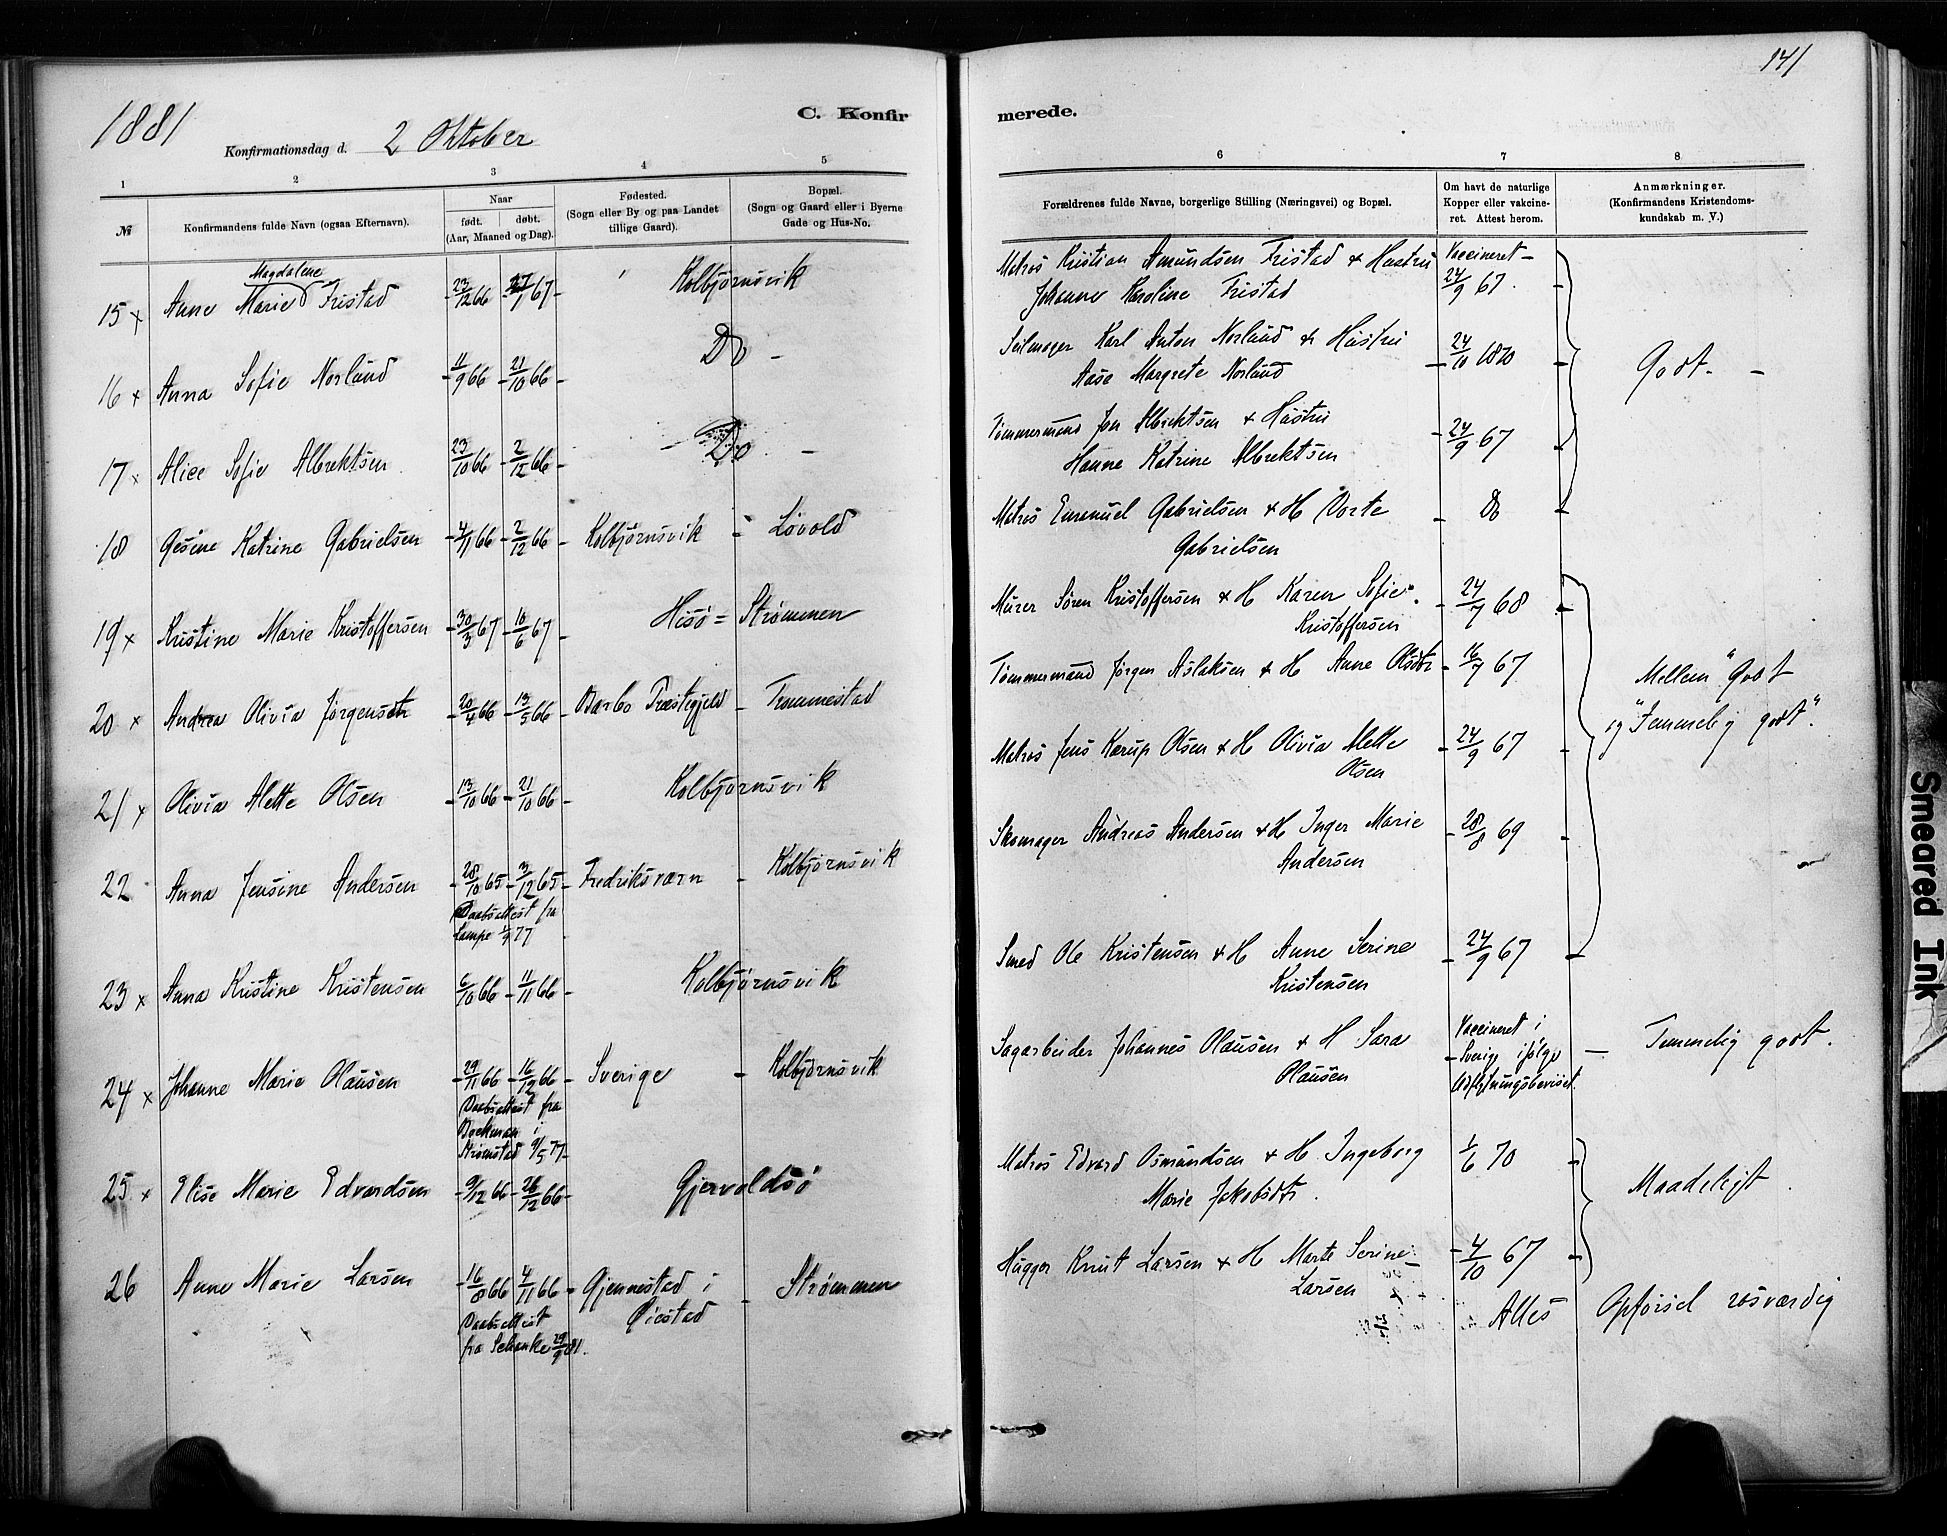 141
1881
C. Konfir
merede.
Konfirmationsdag d. 2 Oktober
1 2 3 4 5 6 7 8
№
Konfirmandens fulde Navn (ogsaa Efternavn).
Naar
født. døbt.
(Aar, Maaned og Dag).
Fødested.
(Sogn eller By og paa Landet
tillige Gaard).
Bopæl.
(Sogn og Gaard eller i Byerne
Gade og Hus-No.
Forældrenes fulde Navne, borgerlige Stilling (Næringsvei) og Bopæl.
Om havt de naturlige
Kopper eller vakcine-
ret. Attest herom.
Anmærkninger.
(Konfirmandens Kristendoms-
kundskab m. V.)
Magdalene
15 x Anne Marie Fristad 23/12 66 67 Kolbjørnsvik
Matros Kristian Amundsen Fristad & Hustru Vaccineret
Johanne Karoline Fristad 24/9 67
16 x Anna Sofie Norlund 11/9 66 21/10 66 Do
Seilmager Karl Anton Norlund & Hustru
Aase Margrete Norlund 24/10 1870 Godt.
17 x Alice Sofie Albrektsen 23/10 66 2/12 66 Do
Tømmermand Jon Albrektsen & Hustru
Hanne Katrine Albrektsen 24/9 67
18 Gesine Katrine Gabrielsen 4/11 66 2/12 66 Kolbjørnsvik Løvold
Matros Emanuel Gabrielsen & H Dorte Do
Gabrielsen
19 x Kristine Marie Kristoffersen 30/3 67 10/6 67 Hisø = Strømmen
Murer Søren Kristoffersen & H Karen Sofie 24/7 68
Kristoffersen
20 x Andrea Olivia Jørgensdtr 20/4 66 13/5 66 Barbo Præstegjeld Trommestad
Tømmermand Jørgen Aslaksen & H Anne Olsdtr 16/7 67 Mellem "Godt
og "Temmelig godt".
21 x Olivia Alette Olsen 13/10 66 21/10 66 Kolbjørnsvik
Matros Jens Karup Olsen & H Olivia Alette 24/9 67
Olsen
22 Anna Jensine Andersen 28/10 65 3/12 65 Fredriksværn Kolbjørnsvik
Daabsattest fra
Lampe 77
Skomager Andreas Andersen & H Inger Marie 28/8 69
Andersen
23 x Anna Kristine Kristensen 6/10 66 11/11 66 Kolbjørnsvik
Smed Ole Kristensen & H Anne Serine 24/9 67
Kristensen
24 x Johanne Marie Olausen 29/11 66 16/12 66 Sverige Kolbjørnsvik
Daabsattest fra
i
Strømstad 9/5 77
Sagarbeider Johannes Olausen & H Sara Vaccineret i
Olausen Sverige ifølge Temmelig godt.
Udflytningsbeviset.
25 x Elise Marie Edvardsen 9/12 66 26/12 66 Gjervoldsø
Matros Edvard Osmundsen & H Ingeborg 1/6 70
Marie Jakobsdtr. Maadeligt
26 Anne Marie Larsen 16/8 66 4/11 66 Gjennestad i Strømmen
Daabsattest Øiestad
fra Schanke 29/9 81.
Hugger Knut Larsen & H Marte Serine 4/10 67
Larsen
Alles Opførsel rosværdig
Smeared Ink